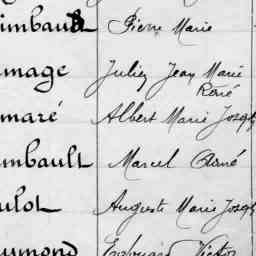 imbault Pierre Marie
mage Julien Jean Marie
René
maré Albert Marie Joseph
mbault Marcel Aimé
ulot Auguste Marie Joseph
aymond Edouard Victor